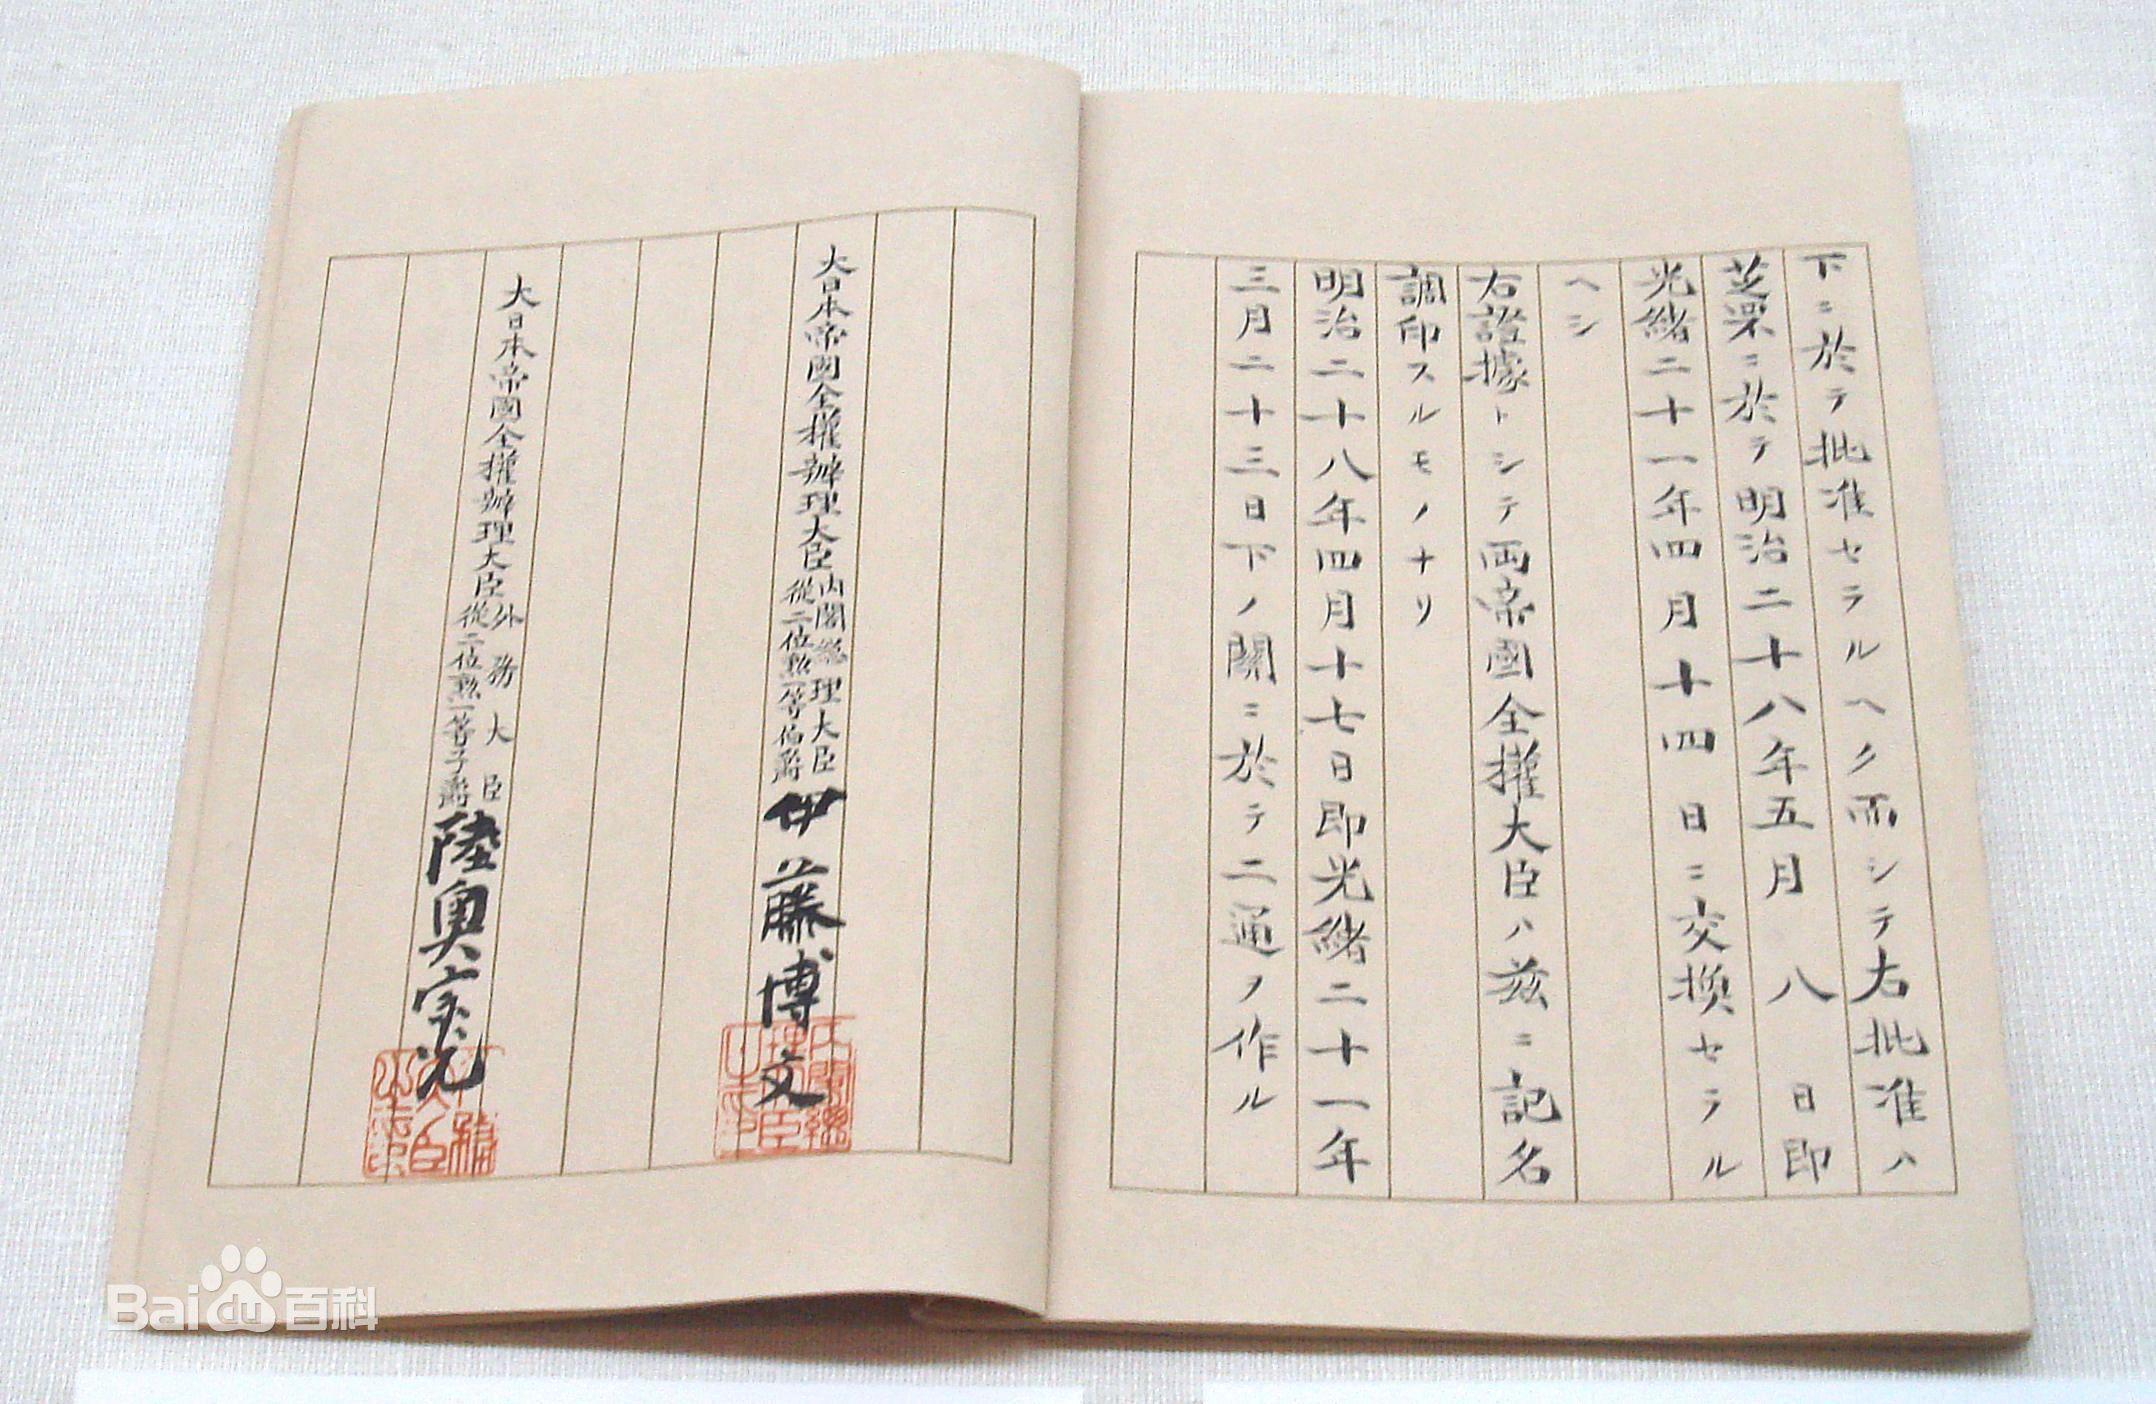 下ニ於テ批准セラルヘク而シテ右批准ハ
芝罘ニ於テ明治二十八年五月八日即
光緒二十一年四月十四日ニ交換セラル
ヘシ
右證據トシテ両帝國全權大臣ハ茲ニ記名
調印スルモノナリ
明治二十八年四月十七日即光緒二十一年
三月二十三日下ノ關ニ於テ二通ヲ作ル
大日本帝國全權辦理大臣
內閣總理大臣
從二位勲一等伯爵
伊藤博文
大日本帝國全權辦理大臣
外務大臣
從二位勲一等子爵
陸奥宗光
Baidu百科